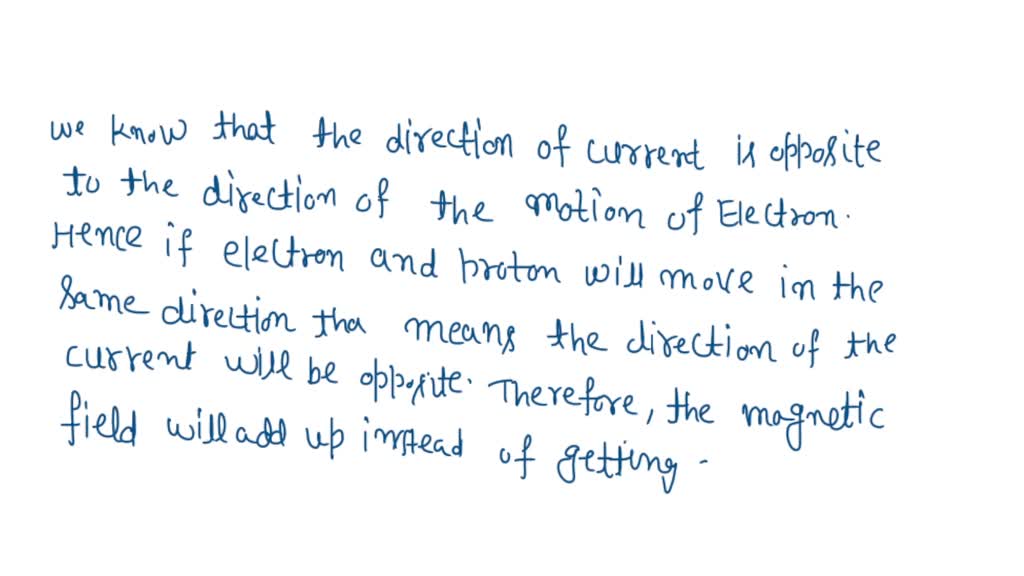 we know that the direction of current is opposite
to the direction of the motion of Electron.
Hence if electron and proton will move in the
same direction tha means the direction of the
current will be opposite. Therefore, the magnetic
field will add up instead of getting -